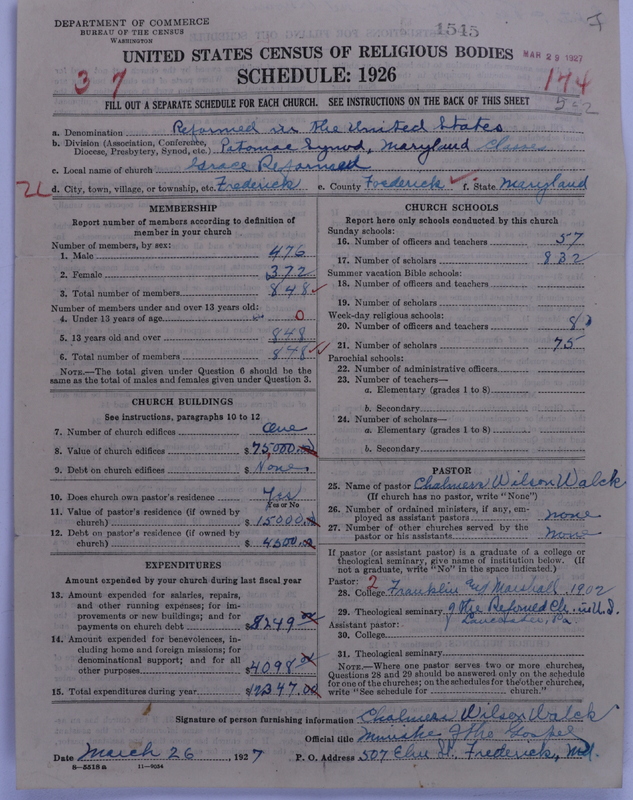 DEPARTMENT OF COMMERCE
BUREAU OF THE CENSUS
WASHINGTON
1545
MAR 29 1927
UNITED STATES CENSUS OF RELIGIOUS BODIES
SCHEDULE: 1926
37
144
FILL OUT A SEPARATE SCHEDULE FOR EACH CHURCH. SEE INSTRUCTIONS ON THE BACK OF THIS SHEET
a. Denomination Reformed in the United States
b. Division (Association, Conference, Diocese, Presbytery, Synod, etc.) Potomac Synod, Maryland Classis
c. Local name of church Grace Reformed
d. City, town, village, or township, etc. Frederick e. County Frederick f. State Maryland
MEMBERSHIP
Report number of members according to definition of
member in your church
Number of members, by sex:
1. Male 476
2. Female 372
3. Total number of members 848
Number of members under and over 13 years old:
4. Under 13 years of age 0
5. 13 years old and over 848
6. Total number of members 848
NOTE.—The total given under Question 6 should be the
same as the total of males and females given under Question 3.
CHURCH BUILDINGS
See instructions, paragraphs 10 to 12
7. Number of church edifices One
8. Value of church edifices $ 75,000.00
9. Debt on church edifices $ None
10. Does church own pastor's residence Yes
Yes or No
11. Value of pastor's residence (if owned by
church) $ 15000.00
12. Debt on pastor's residence (if owned by
church) $ 4500.00
EXPENDITURES
Amount expended by your church during last fiscal year
13. Amount expended for salaries, repairs,
and other running expenses; for im-
provements or new buildings; and for
payments on church debt $ 8249.00
14. Amount expended for benevolences, in-
cluding home and foreign missions; for
denominational support; and for all
other purposes $ 4098.00
15. Total expenditures during year $ 12347.00
CHURCH SCHOOLS
Report here only schools conducted by this church
Sunday schools:
16. Number of officers and teachers 57
17. Number of scholars 832
Summer vacation Bible schools:
18. Number of officers and teachers
19. Number of scholars
Week-day religious schools:
20. Number of officers and teachers 8
21. Number of scholars 75
Parochial schools:
22. Number of administrative officers
23. Number of teachers—
a. Elementary (grades 1 to 8)
b. Secondary
24. Number of scholars—
a. Elementary (grades 1 to 8)
b. Secondary
PASTOR
25. Name of pastor Chalmers Wilson Walck
(If church has no pastor, write "None")
26. Number of ordained ministers, if any, em-
ployed as assistant pastors none
27. Number of other churches served by the
pastor or his assistants none
If pastor (or assistant pastor) is a graduate of a college or
theological seminary, give name of institution below. (If
not a graduate, write "No" in the space indicated.)
Pastor: 2
28. College Franklin and Marshall, 1902
29. Theological seminary of the Reformed Ch. in U.S.
Lancaster, Pa
Assistant pastor:
30. College
31. Theological seminary
NOTE.—Where one pastor serves two or more churches,
Questions 28 and 29 should be answered only on the schedule
for one of the churches; on the schedules for the other churches,
write "See schedule for church."
Signature of person furnishing information Chalmers Wilson Walck
Official title Minister of the Gospel
Date March 26, 1927 P. O. Address Frederick, Md.
8-5518a 11-9054